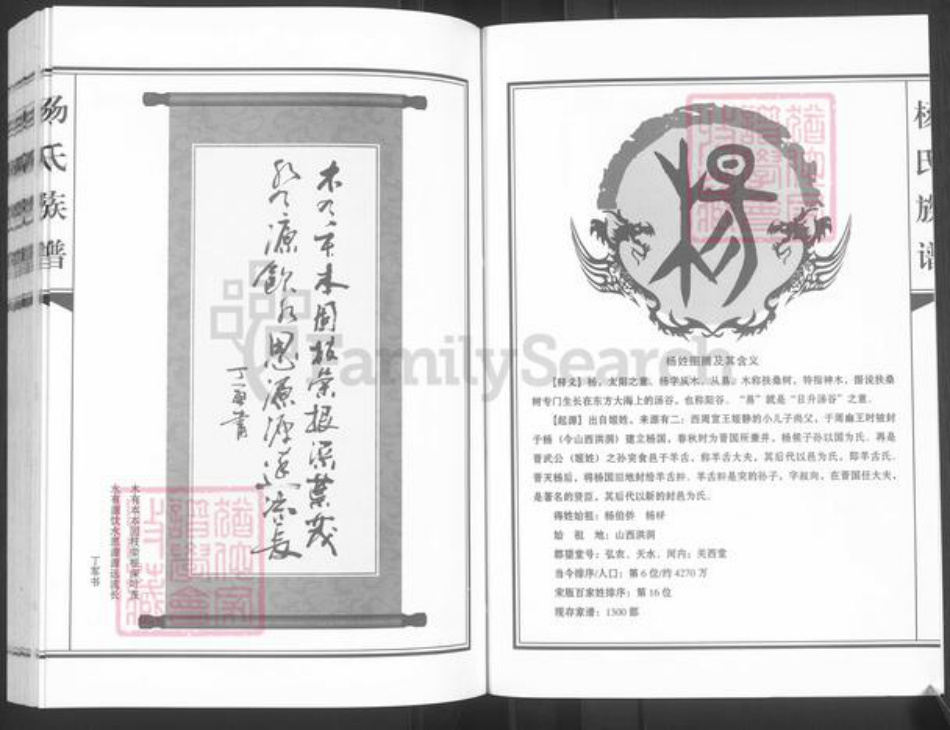 杨氏族谱
木有本本固枝荣根深叶茂
水有源饮水思源源远流长
丁军书
木有本本固枝荣根深叶茂
水有源饮水思源源远流长
丁军书
FamilySearch
杨氏族谱
杨
杨姓图腾及其含义
【释义】杨，太阳之意。杨字从木、从昜。木称扶桑树，特指神木，据说扶桑
树专门生长在东方大海上的汤谷，也称阳谷。“昜”就是“日升汤谷”之意。
【起源】出自姬姓，来源有二：西周宣王姬静的小儿子尚父，于周幽王时被封
于杨（今山西洪洞）建立杨国，春秋时为晋国所兼并，杨侯子孙以国为氏。再是
晋武公（姬姓）之孙突食邑于羊舌，称羊舌大夫，其后代以邑为氏，即羊舌氏。
晋灭杨后，将杨国旧地封给羊舌肸。羊舌肸是突的孙子，字叔向，在晋国任大夫，
是著名的贤臣，其后代以新的封邑为氏。
得姓始祖：杨伯侨 杨杼
始 祖 地：山西洪洞
郡望堂号：弘农、天水、河内；关西堂
当今排序/人口：第 6 位/约 4270 万
宋版百家姓排序：第 16 位
现存家谱：1300 部